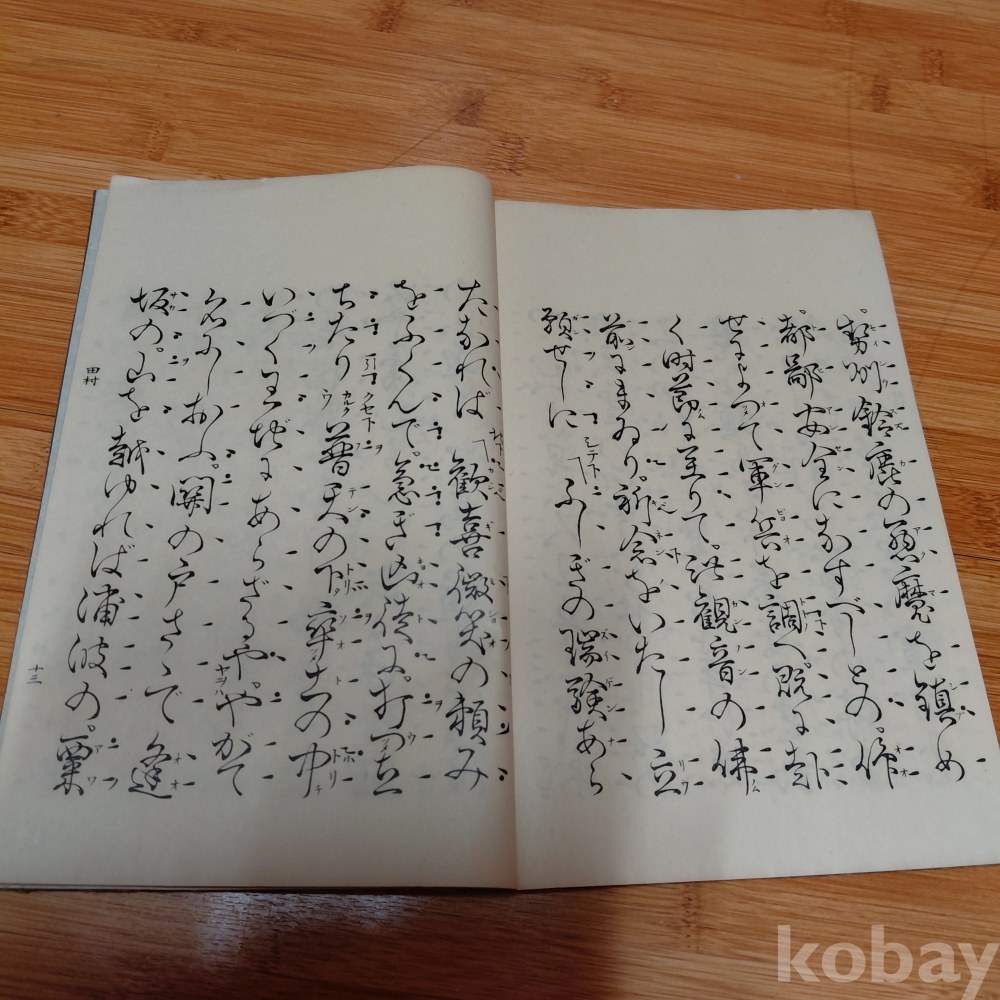 勢州鈴鹿の惡魔を鎮め
都鄙安全になすべしとの。仰
せによつて軍兵を調へ既に赴
く時節に至りて。此觀音の佛
前にまゐり。祈念をいたし立
願せしに ふしぎの瑞驗あら
たなれば 歡喜微笑の頼み
をふくんで。急ぎ凶徒に。打つ立
ちたり 普天の下。率土の中
いづく王地にあらざるや。やがて
名にしおふ。關の戸さゝで逢
坂の。山を越ゆれば浦波の。粟
田村
十三
kobay